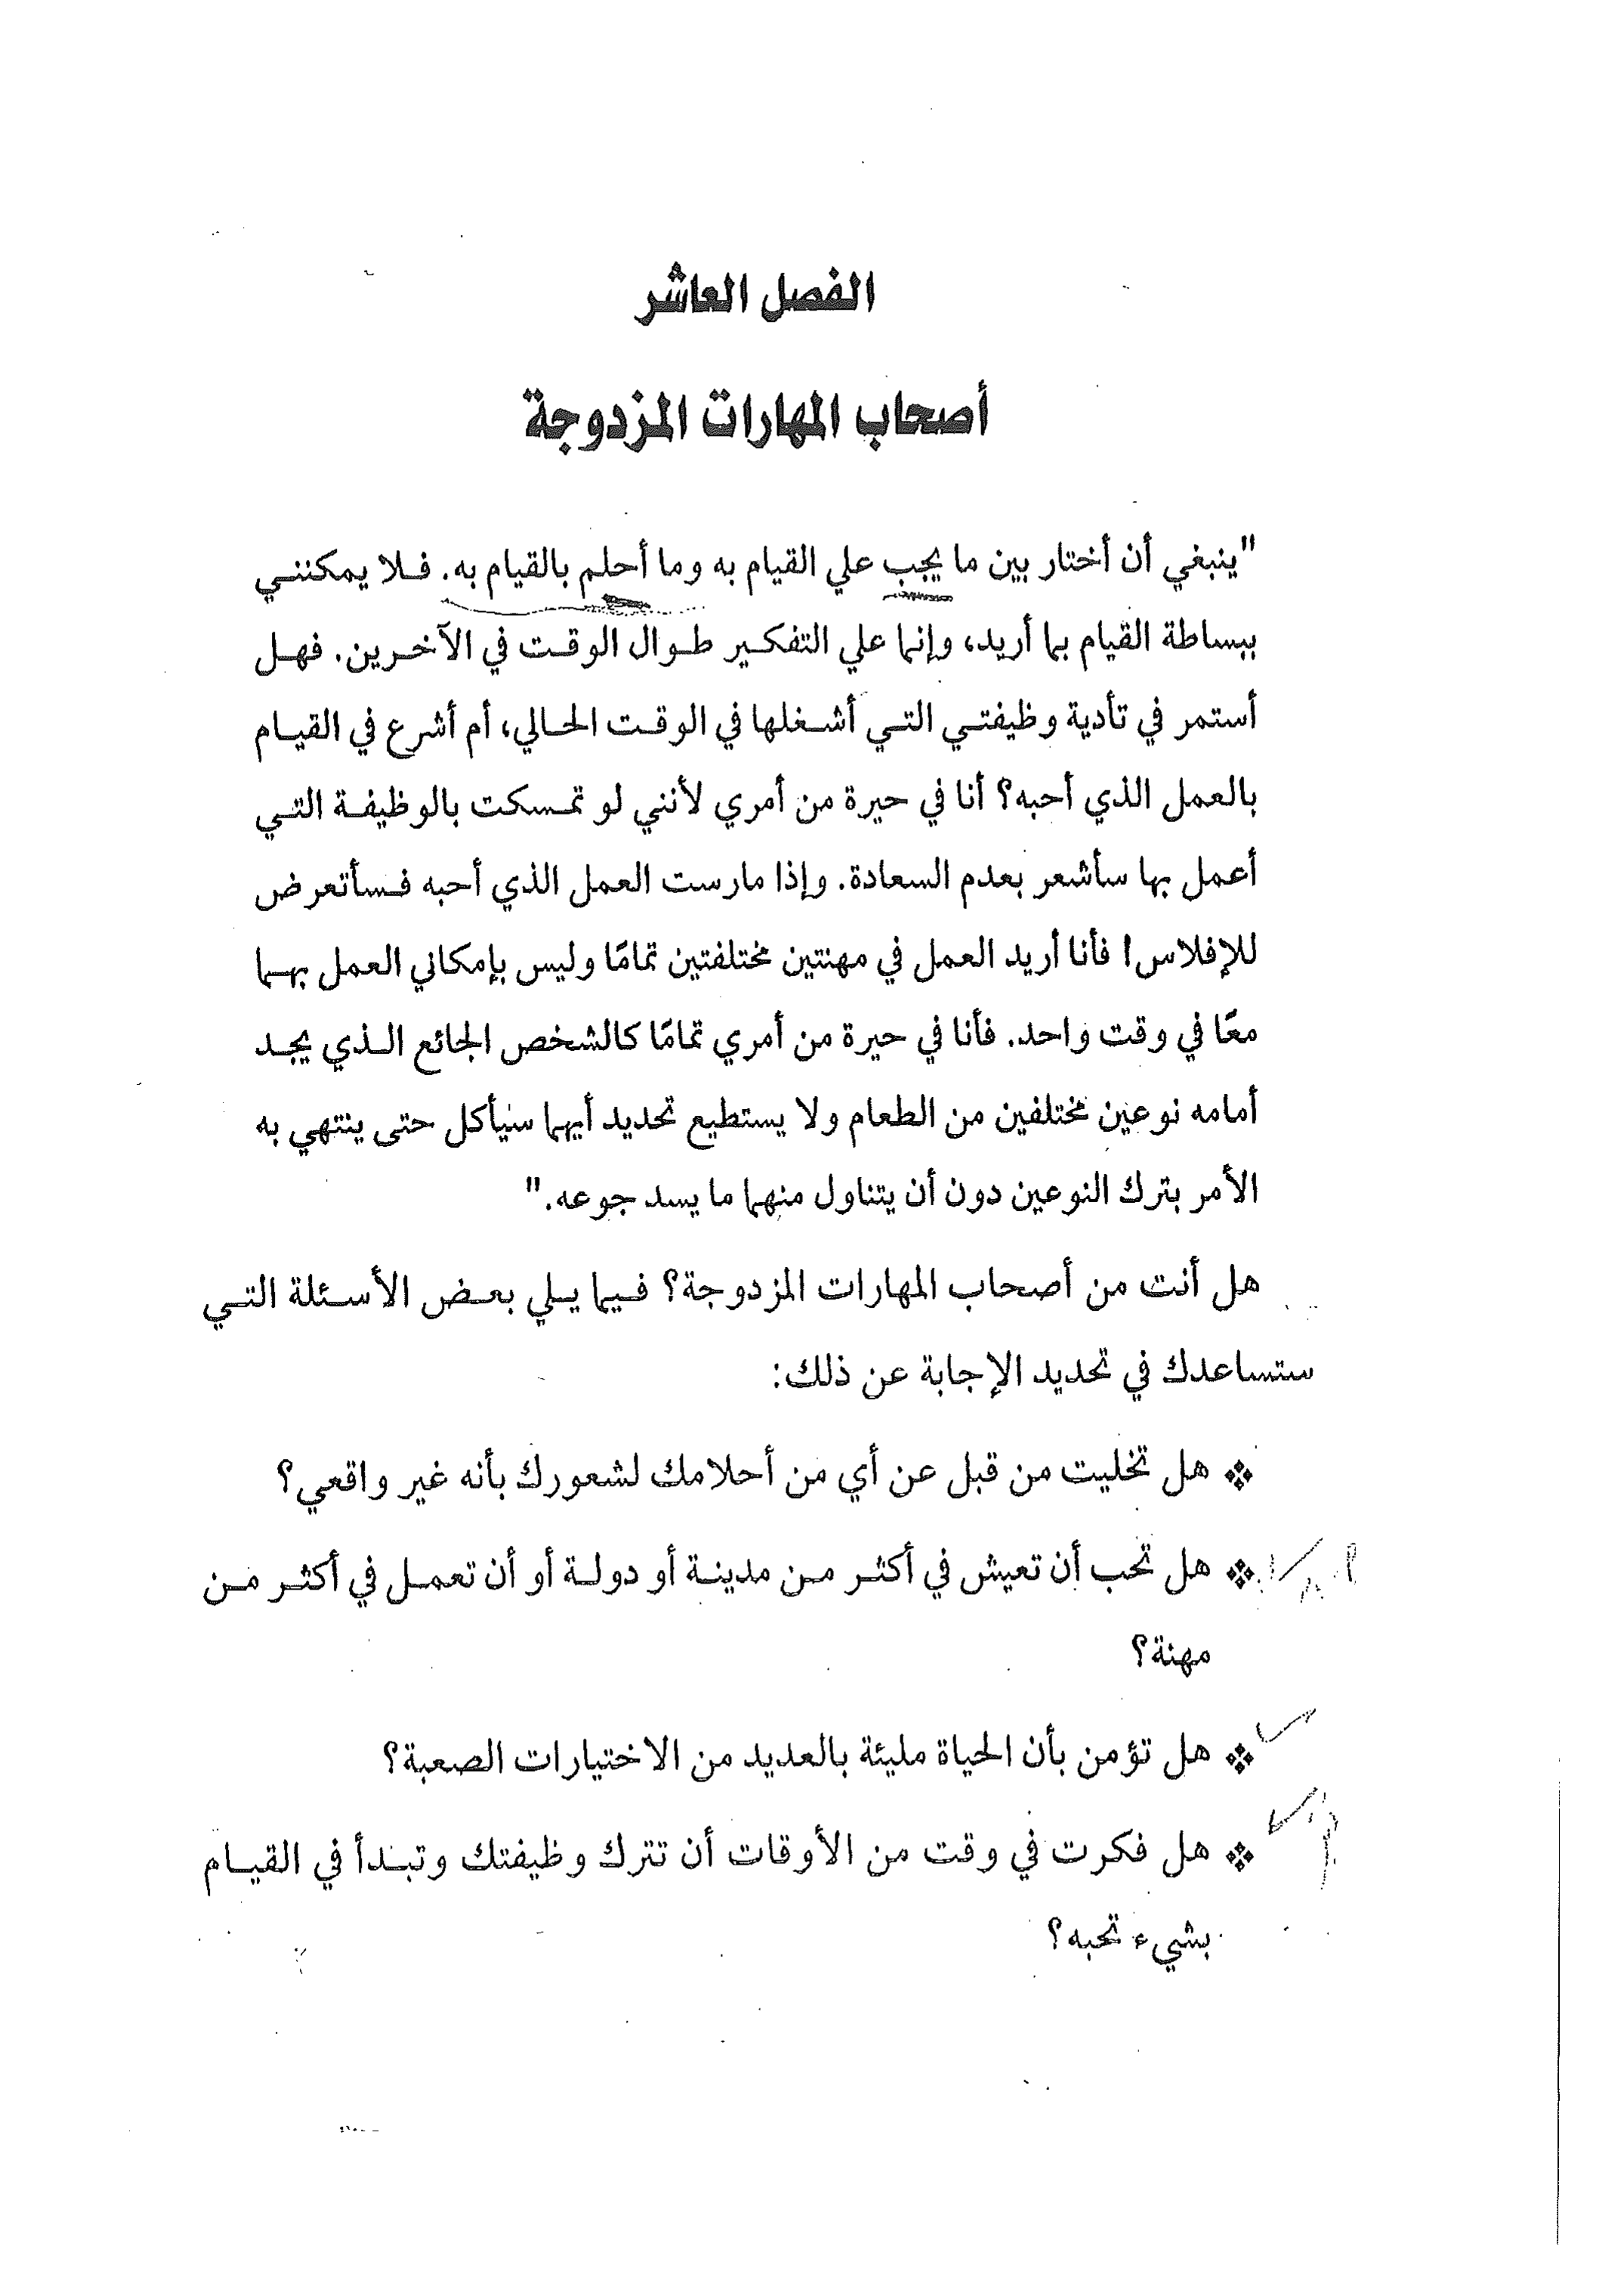 الفصل العاشر
أصحاب المهارات المزدوجة
"ينبغي أن أختار بين ما يجب علي القيام به وما أحلم بالقيام به. فلا يمكنني
ببساطة القيام بما أريد، وإنما علي التفكير طوال الوقت في الآخرين. فهل
أستمر في تأدية وظيفتي التي أشغلها في الوقت الحالي، أم أشرع في القيام
بالعمل الذي أحبه؟ أنا في حيرة من أمري لأنني لو تمسكت بالوظيفة التي
أعمل بها سأشعر بعدم السعادة. وإذا مارست العمل الذي أحبه فسأتعرض
للإفلاس! فأنا أريد العمل في مهنتين مختلفتين تمامًا وليس بإمكاني العمل بهما
معًا في وقت واحد. فأنا في حيرة من أمري تمامًا كالشخص الجائع الذي يجد
أمامه نوعين مختلفين من الطعام ولا يستطيع تحديد أيهما سيأكل حتى ينتهي به
الأمر بترك النوعين دون أن يتناول منهما ما يسد جوعه."
هل أنت من أصحاب المهارات المزدوجة؟ فيما يلي بعض الأسئلة التي
ستساعدك في تحديد الإجابة عن ذلك:
❖ هل تخليت من قبل عن أي من أحلامك لشعورك بأنه غير واقعي؟
❖ هل تحب أن تعيش في أكثر من مدينة أو دولة أو أن تعمل في أكثر من
مهنة؟
❖ هل تؤمن بأن الحياة مليئة بالعديد من الاختيارات الصعبة؟
❖ هل فكرت في وقت من الأوقات أن تترك وظيفتك وتبدأ في القيام
بشيء تحبه؟